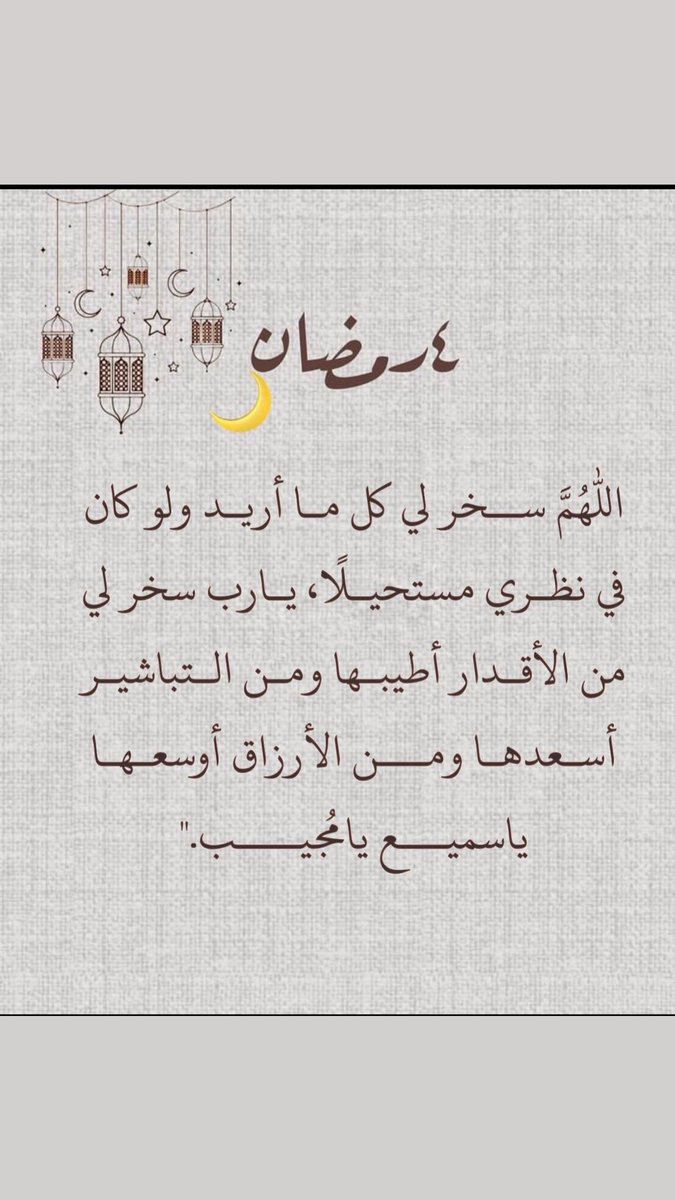 ٤رمضان
اللهُمَّ سـخر لي كل مـا أريـد ولو كان
في نظـري مستحيـلًا، يـارب سخر لي
من الأقـدار أطيبـها ومـن الـتباشيـر
أسـعدهـا ومـن الأرزاق أوسعـهـا
ياسميـع يامُجيـب."